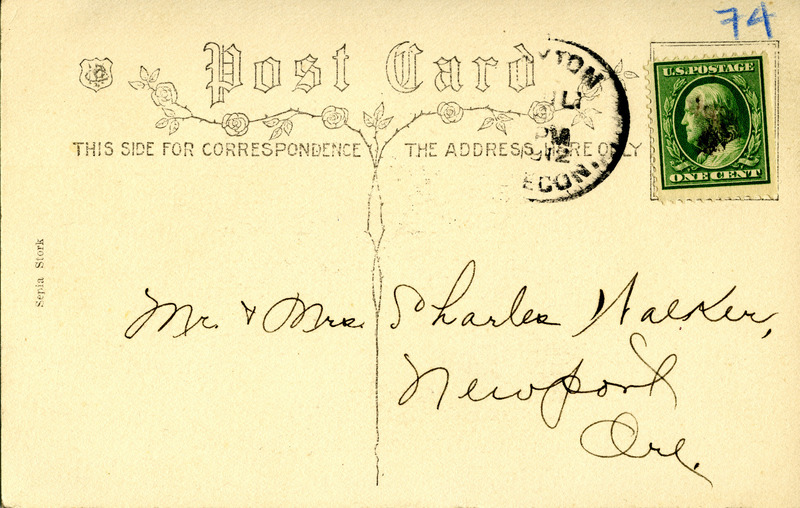 74
Post Card
U.S. POSTAGE
ONE CENT
THIS SIDE FOR CORRESPONDENCE
THE ADDRESS HERE ONLY
YTON
PM
1912
Sepia Stork
Mr. & Mrs. Charles Walker,
Newport
Ore.